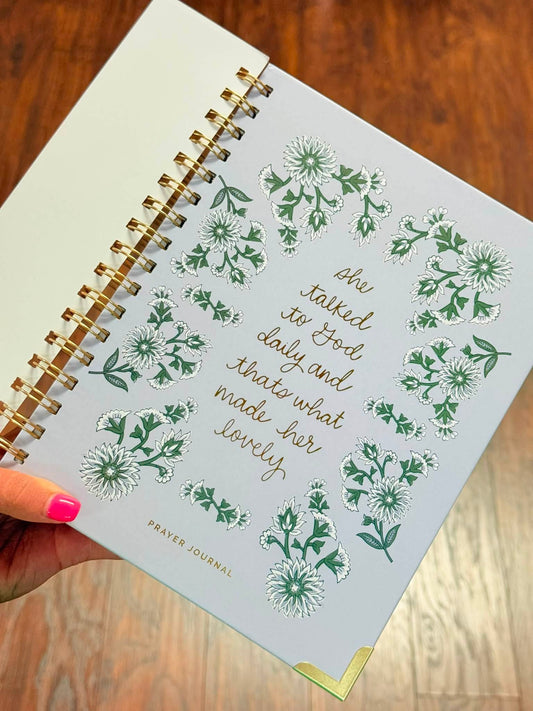 she
talked
to God
daily and
thats what
made her
lovely
PRAYER JOURNAL